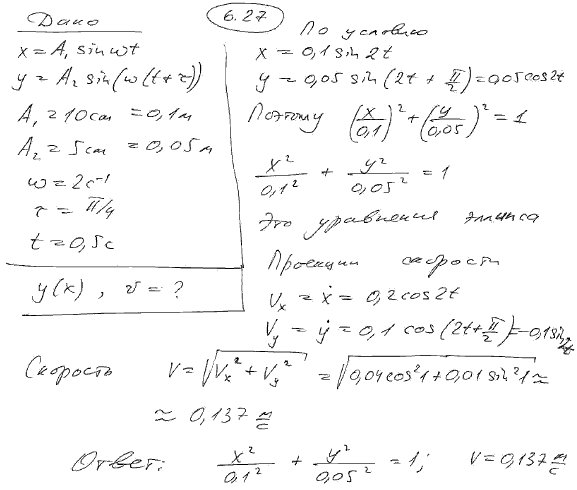 6.27
Дано
x = A₁ sin ωt
y = A₂ sin(ω(t + τ))
A₁ = 10 см = 0,1 м
A₂ = 5 см = 0,05 м
ω = 2 с⁻¹
τ = π/4
t = 0,5 с
y(x), v = ?
По условию
x = 0,1 sin 2t
y = 0,05 sin (2t + π/2) = 0,05 cos 2t
Поэтому (x/0,1)² + (y/0,05)² = 1
x²/0,1² + y²/0,05² = 1
Это уравнения элипса
Проекции скорости
Vₓ = ẋ = 0,2 cos 2t
V_y = ẏ = 0,1 cos (2t + π/2) = -0,1 sin 2t
Скорость V = √(Vₓ² + V_y²) = √(0,04 cos²1 + 0,01 sin²1) ≈
≈ 0,137 м/с
Ответ: x²/0,1² + y²/0,05² = 1; V = 0,137 м/с